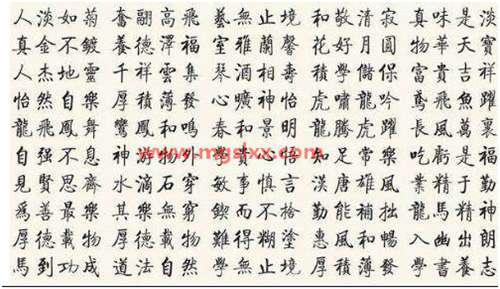 人淡如菊 奮翮高飛 藝無止境 和敬清寂 真味是淡
真金不鍍 養德澤福 室雅蘭馨 花好月圓 物華天寶
人杰地靈 千祥雲集 琴酒相壽 積學儲保 富貴吉祥
怡然自樂 厚積薄發 心曠神怡 虎嘯龍吟 鳶飛魚躍
龍飛鳳舞 鸞鳳和鳴 春和景明 龍騰虎躍 長風萬裏
自强不息 神游物外 學 知足常樂 吃虧是福
見賢思齊 水滴石穿 敏事慎言 漢唐雄風 業精于勤
爲善最樂 其樂無窮 鍥而不捨 勤能補拙 龍馬精神
厚德載物 厚德載物 難得糊塗 惠風和暢 入幽出朗
馬到功成 道法自然 學無止境 厚積薄發 學書養志
www.mgslxx.com